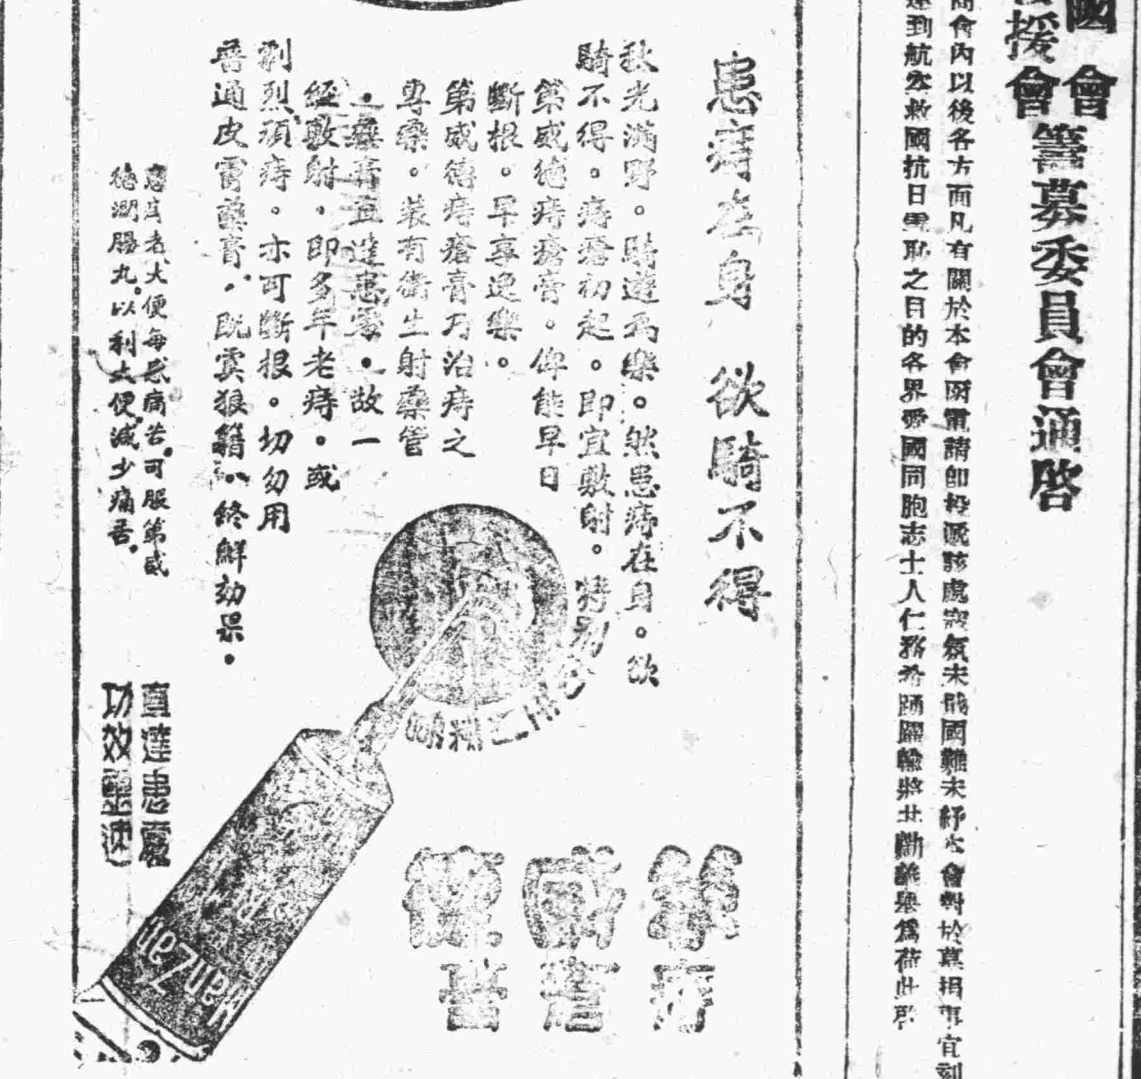 國會
後援會籌募委員會通啓
商會內以後各方面凡有關於本會函電請卽投遞該處寇氛未戢國難未紓本會對於募捐事宜刻
達到航空救國抗日雪恥之目的各界愛國同胞志士人仁務希踴躍輸將共勷義舉爲荷此啓
患痔在身 欲騎不得
秋光滿野。騎遊爲樂。然患痔在身。欲
騎不得。痔瘡初起。即宜敷射。特
第威德痔瘡膏。俾能早日
斷根。早享逸樂。
第威德痔瘡膏乃治痔之
專藥。裝有衛生射藥管
。藥膏直達患處。故一
經敷射。即多年老痔。或
劇烈頑痔。亦可斷根。切勿用
普通皮膏藥膏。既虞狼籍。終鮮効果。
患痔者大便每感痛苦。可服第威
德潤腸丸。以利大便。減少痛苦。
直達患處
功效靈速
第威德
痔瘡膏
ManZan